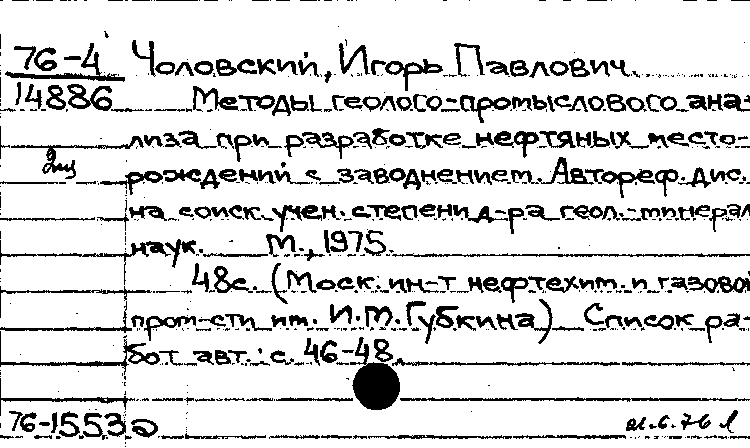 76-4 Чоловский, Игорь Павлович.
14886 Методы геолого-промыслового ана-
лиза при разработке нефтяных место-
рождений с заводнением. Автореф. дис.
на соиск. учен. степени д-ра геол.-минерал
наук. М., 1975.
48с. (Моск. ин-т нефтехим. и газовой
пром-сти им. И.М. Губкина) Список ра-
бот авт.: с. 46-48.
76-1553